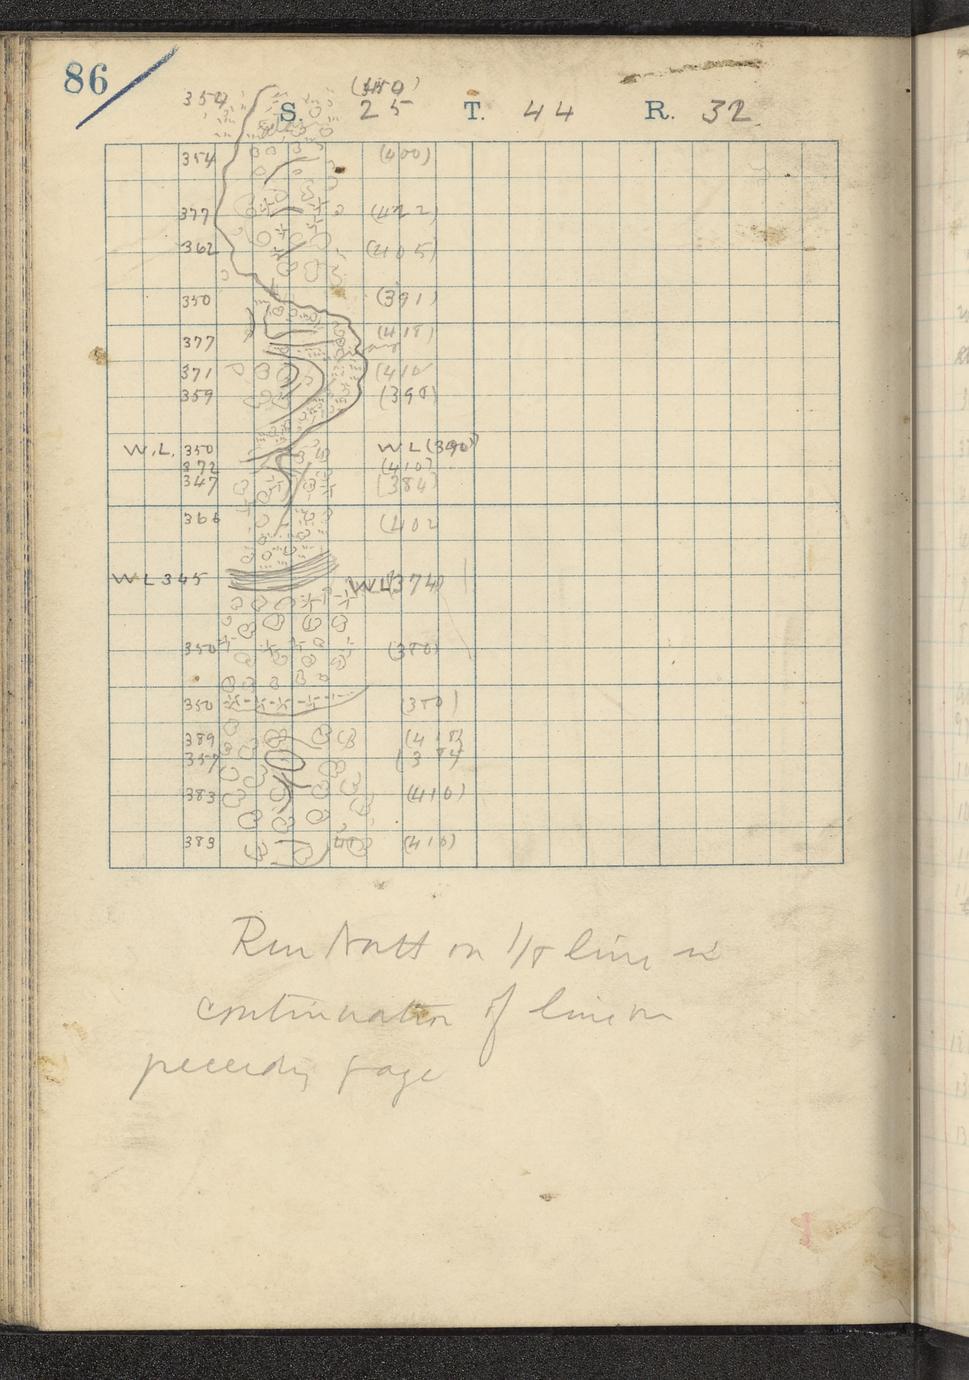 86
354 (410)
S. 25 T. 44 R. 32
354 (400)
377 (422)
362 (405)
350 (391)
377 (418)
371 (410
359 (390)
W.L. 350 WL (390)
372 (410)
347 (384)
366 (402
WL 345 WL (374)
350 (380)
350 (380)
389 (418)
357 (384)
383 (410)
383 (410)
Run North on 1/8 line in
continuation of line on
preceding page